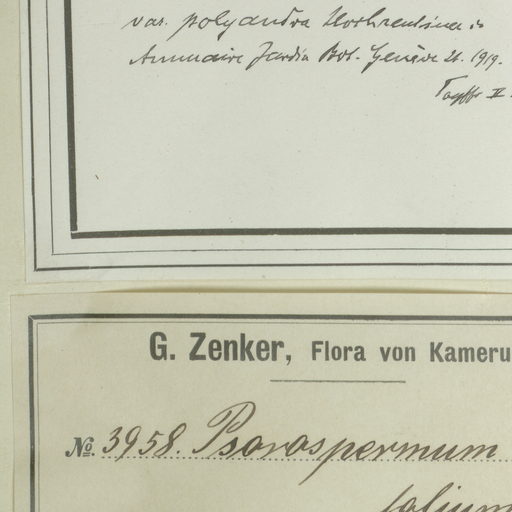 var. polyandra Hochreutiner in
Annuaire Jardin Bot. Genève 21. 1919.
II.
G. Zenker, Flora von Kameru
No. 3958. Psorospermum
folium